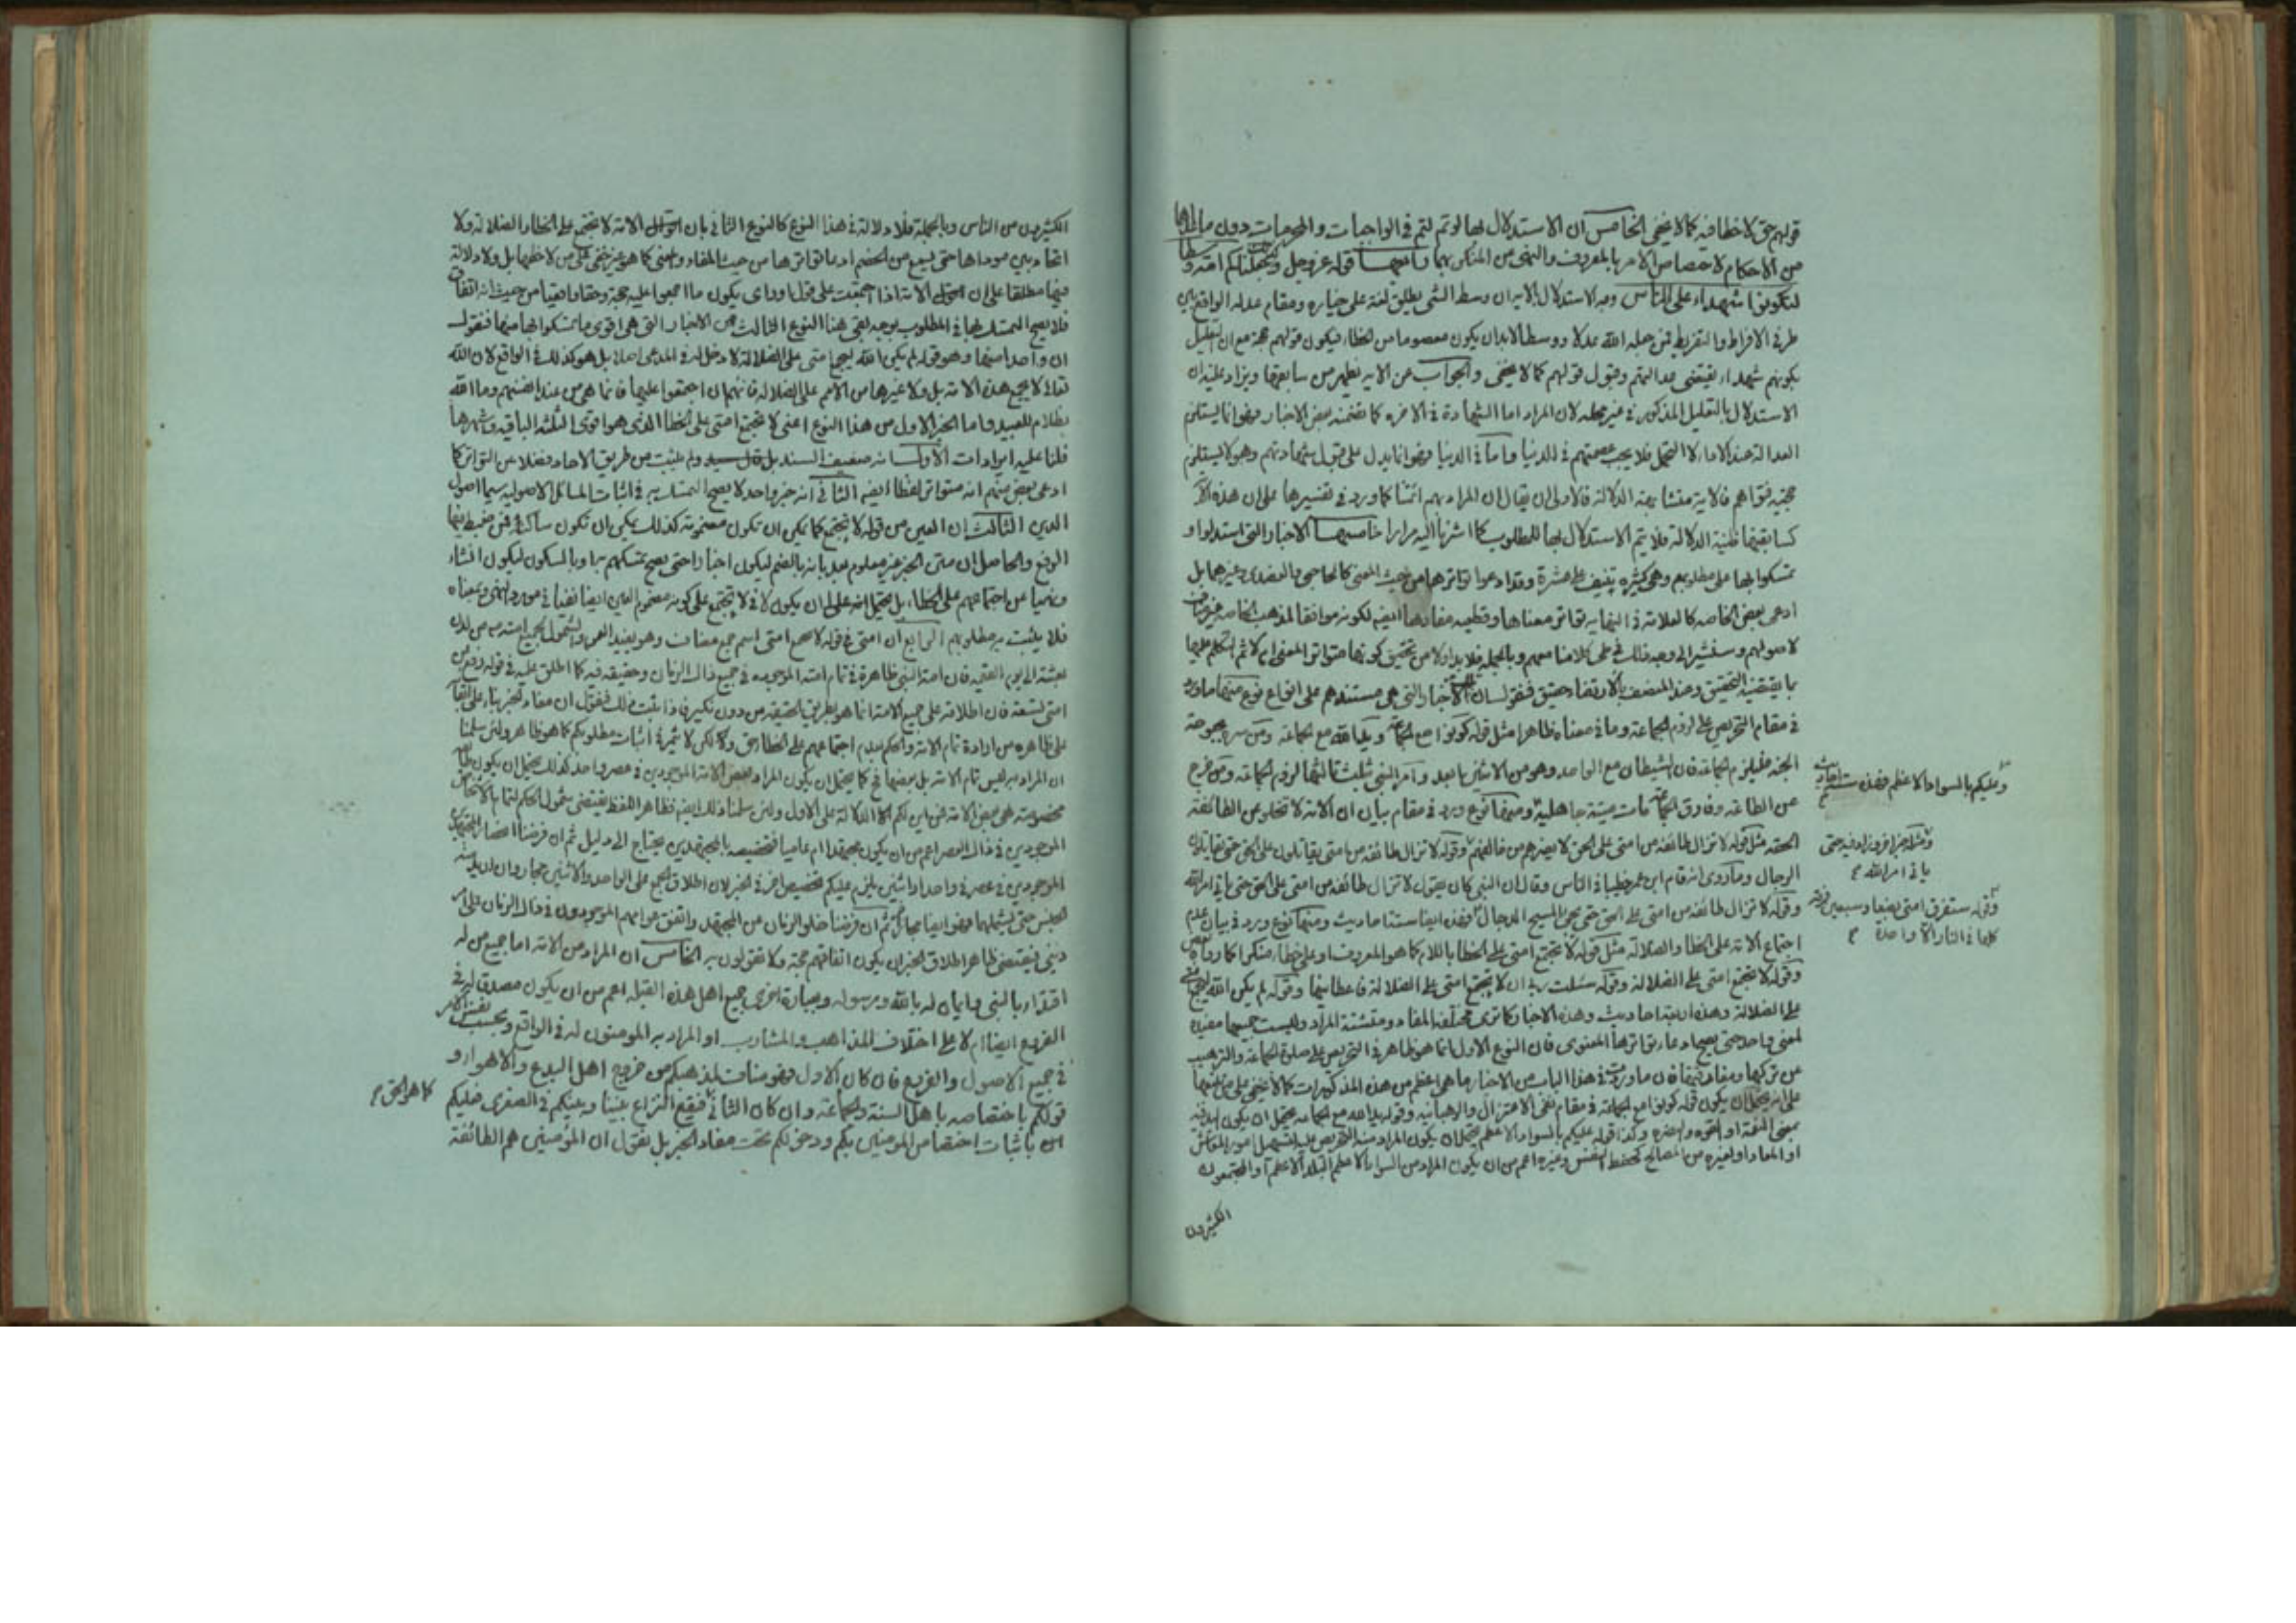 قولهم حق لا خطا فيه كما لا يخفى الخامس ان الاستدلال بها لو تم لتم في الواجبات والمحرمات دون ما
من الاحكام لاختصاص الامر بالمعروف والنهى عن المنكر بهما قوله عز وجل وكذلك جعلناكم امة وسطا
لتكونوا شهداء على الناس وجه الاستدلال بالاية ان وسط الشئ يطلق لغة على خياره ومقام عدله الواقع بين
طرفى الافراط والتفريط فمن جعله الله عدلا ووسطا لابد ان يكون معصوما من الخطاء فيكون قولهم حجة مع ان تعليل
بكونهم شهداء يقتضى عدالتهم وقبول قولهم كما لا يخفى والجواب عن الاية يظهر من سابقها ويزاد عليه ان
الاستدلال بالتعليل المذكور في غير محله لان المراد اما الشهادة في الاخرة كما تضمنه بعض الاخبار فهو انما يستلزم
العدالة عند الاداء لا التحمل فلا يجب عصمتهم في الدنيا واما في الدنيا فهو انما يدل على قبول شهادتهم وهو لا يستلزم
حجية فتواهم فالاية متشابهة الدلالة فالاولى ان يقال ان المراد بهم ائمتنا كما ورد في تفسيرها على ان هذه الآية
كسابقتها ظنية الدلالة فلا يتم الاستدلال بها للمطلوب كما اشرنا اليه مرارا خامسها الاخبار التى استدلوا و
تمسكوا بها على مطلوبهم وهى كثيرة تنيف على عشرة وقد ادعوا تواترها من حيث المعنى كالحاجبى والعضدى وغيرهما بل
ادعى بعض الخاصة كالعلامة في النهاية تواتر معناها وقطعية مفادها ايضا لكونه موافقا لمذهب الخاصة
لاصولهم وسنشير الى وجه ذلك في طى كلامنا معهم وبالجملة فلا بد اولا من تحقيق كونها متواتر المعنى ام لا ثم التكلم عليها
بما يقتضيه التحقيق وعند المنصف بالارتضاء حقيق فنقول ان الاخبار التى هى مستندهم على انواع نوع منها ما ورد
في مقام التحريص على لزوم الجماعة وما في معناه ظاهرا مثل قوله كونوا مع الجماعة ويد الله مع الجماعة ومن سره بحبوحة
الجنة فليلزم الجماعة فان الشيطان مع الواحد وهو من الاثنين ابعد وامر النبى بثلث ثالثها لزوم الجماعة ومن خرج
عن الطاعة وفارق الجماعة مات ميتة جاهلية ومنها نوع ورد في مقام بيان ان الامة لا تخلو عن الطائفة
المحقة مثل قوله لا تزال طائفة من امتى على الحق لا يضرهم من خالفهم وقوله لا تزال طائفة من امتى يقاتلون على الحق حتى يقاتلون
الدجال وما روى انه قام ابن عمر خطيبا في الناس وقال ان النبى كان يقول لا تزال طائفة من امتى على الحق حتى ياتى امر الله
وقوله لا تزال طائفة من امتى على الحق حتى يجئ المسيح الدجال فهذه ايضا ستة احاديث ومنها نوع ورد في بيان عدم
اجتماع الامة على الخطا والضلالة مثل قوله لا تجتمع امتى على الخطا باللام كما هو المعروف او على خطاء منكرا كما رواه بعض
وقوله لا تجتمع امتى على الضلالة وقوله سئلت ربى ان لا تجتمع امتى على الضلالة فاعطانيها وقوله لم يكن الله ليجمع امتى
على الضلالة وهذه اربعة احاديث وهذه الاخبار كما ترى مختلفة المفاد ومتشتتة المراد وليست جميعها مفيدة
لمعنى واحد حتى يصح ادعاء تواترها المعنوى فان النوع الاول انما هو ظاهر في التحريص على صلوة الجماعة والترهيب
عن تركها وما ورد في هذا الباب من الاخبار ما هى اعظم من هذه المذكورات كما لا يخفى على من تتبعها
على انه يحتمل ان يكون قوله كونوا مع الجماعة في مقام نفى الاعتزال والرهبانية وقوله يد الله مع الجماعة يحتمل ان يكون اليد فيه
بمعنى النعمة او القوة والنصرة وكذا قوله عليكم بالسواد الاعظم يحتمل ان يكون المراد منه التحريص عليه لتسهيل امور المعاش
او المعاد او لغيره من المصالح كحفظ النفس وغيره اعم من ان يكون المراد من السواد الاعظم البلد الاعظم او المجتمعون
الكثيرون
وعليكم بالسواد الاعظم فهذه ستة احاديث
ومثله خبر اخر وزاد فيه حتى
ياتى امر الله
وقوله ستفرق امتى بضعا وسبعين فرقة
كلها في النار الا واحدة
الكثيرون من الناس وبالجملة فلا دلالة في هذا النوع كالنوع الثانى بان الامة لا تجتمع على الخطاء والضلالة ولا
اتحاد بين موداها حتى يسمع من الخصم ادعاء تواترها من حيث المفاد والمعنى كما هو غير خفى على من لاحظها بل ولا دلالة
فيها مطلقا على ان الامة اذا اجمعت على قول وراى يكون ما اجمعوا عليه حجة وحقا واقعيا من حيث انه اتفاق
فلا يصح التمسك بها في المطلوب بوجه بقى هنا النوع الثالث من الاخبار التى هى اقوى ما تمسكوا بها منها فنقول
ان واحدا منها وهو قوله لم يكن الله ليجمع امتى على الضلالة لا دخل له في المدعى اصلا بل هو كذلك في الواقع لان الله
تعالى لا يجمع هذه الامة بل ولا غيرها من الامم على الضلالة فانهم ان اجتمعوا عليها فانما هى من عند انفسهم وما الله
بظلام للعبيد واما الخبر الاول من هذا النوع اعنى لا تجتمع امتى على الخطا الذى هو اقوى الثلثة الباقية واشهرها
قلنا عليه ايرادات الاول انه ضعيف السند بل ولم يثبت من طريق الاحاد فضلا عن التواتر كما
ادعى بعض منهم انه متواتر لفظا ايضا الثانى انه خبر واحد لا يصح التمسك به في اثبات المسائل الاصولية سيما اصول
الدين الثالث ان العين من قوله لا تجتمع كما يمكن ان تكون مضمومة كذلك يمكن ان تكون ساكنة فمن ضبط فيها
الرفع والحاصل ان متن الخبر غير معلوم بعد بانه بالضم ليكون اخبارا حتى يصح تمسكهم به او بالسكون ليكون انشاء
ونهيا عن اجتماعهم على الخطاء بل يحتمل ان يكون لا في لا تجتمع على كونه مضموم العين ايضا نفيا في مورد النهى ومعناه
فلا يثبت به مطلوبهم الرابع ان امتى في قوله لا تجتمع امتى اسم جمع مضاف وهو يفيد العموم والشمول لجميع امته من لدن
بعثته الى يوم القيمة فان امة النبى ظاهرة في تمام امته الموجودة في جميع ذاك الزمان وحقيقة فيه كما اطلق عليه في قوله رفع عن
امتى تسعة فان اطلاقه على جميع الامة انما هو بطريق الحقيقة من دون نكير فاذا ثبت ذلك فنقول ان مفاد الخبر بناء على ابقائه
على ظاهره من ارادة تمام الامة والحكم بعدم اجتماعهم على الخطا حق ولكن لا ثمرة في اثبات مطلوبكم كما هو ظاهر ولئن سلمنا
ان المراد به ليس تمام الامة بل بعضها كما يحتمل ان يكون المراد بعض الامة الموجودين في عصر واحد كذلك يحتمل ان يكون
مخصوصة هى بعض الامة فمن اين لكم الدلالة على الاول ولئن سلمنا ذلك ايضا فظاهر اللفظ يقتضى شمول الحكم لتمام الاشخاص
الموجودين في ذاك العصر اعم من ان يكون مجتهدا ام عاميا فتخصيصه بالمجتهدين يحتاج الى دليل ثم ان فرضنا انحصار المجتهدين
الموجودين في عصر في واحد او اثنين يلزم عليكم تخصيص اخر في الخبر لان اطلاق الجمع على الواحد والاثنين مجاز وان اريد منه
الجنس حتى يشملهما فهو ايضا مجاز ثم ان فرضنا خلو الزمان عن المجتهد واتفق عوامهم الموجودون في ذاك الزمان على امر
دينى فيقتضى ظاهر اطلاق الخبر ان يكون اتفاقهم حجة ولا تقولون به الخامس ان المراد من الامة اما جميع من له
اقرار بالنبى وايمان له بالله ورسوله وبعبارة اخرى جميع اهل هذه القبلة اعم من ان يكون مصدقا له في
الفروع ايضا ام لا على اختلاف المذاهب والمشارب او المراد به المومنون له في الواقع وبحسب نفس الامر
في جميع الاصول والفروع فان كان الاول فهو مناف لمذهبكم من خروج اهل البدع والاهواء و
قولكم باختصاصه باهل السنة والجماعة وان كان الثانى فيقع النزاع بيننا وبينكم في الصغرى فعليكم
باثبات اختصاص المومنين بكم ودخولكم تحت مفاد الخبر بل نقول ان المؤمنين هم الطائفة
كما هو الحق